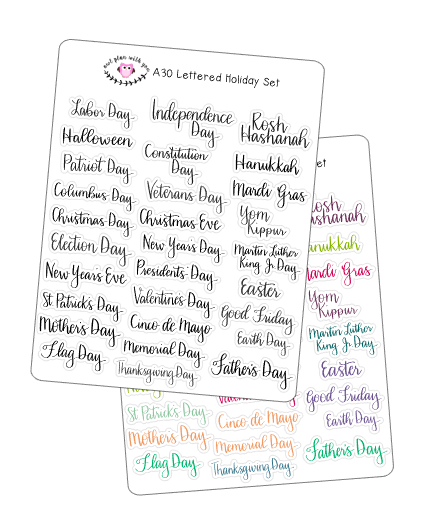 owl plan with you
A30 Lettered Holiday Set
Labor Day
Independence
Day
Rosh
Hashanah
Halloween
Constitution
Day
Hanukkah
Patriot Day
Columbus Day
Veterans Day
Mardi Gras
Christmas Day
Christmas Eve
Yom
Kippur
Election Day
New Years Day
Martin Luther
King Jr Day
New Year's Eve
Presidents Day
Easter
St Patrick's Day
Valentine's Day
Good Friday
Mother's Day
Cinco de Mayo
Earth Day
Flag Day
Memorial Day
Father's Day
Thanksgiving Day
et
Rosh
ashanah
anukkah
ardi Gras
Yom
Kippur
Martin Luther
King Jr Day
Easter
Good Friday
St Patrick's Day
Cinco de Mayo
Earth Day
Mother's Day
Memorial Day
Father's Day
Flag Day
Thanksgiving Day